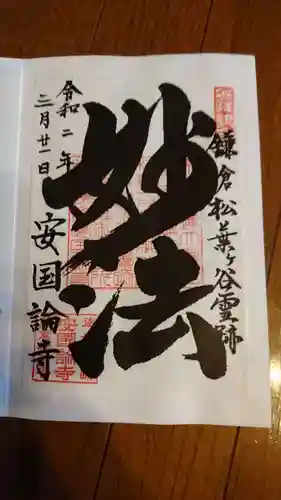 鎌倉松葉ヶ谷霊跡
妙法
令和二年
三月廿一日
安国論寺